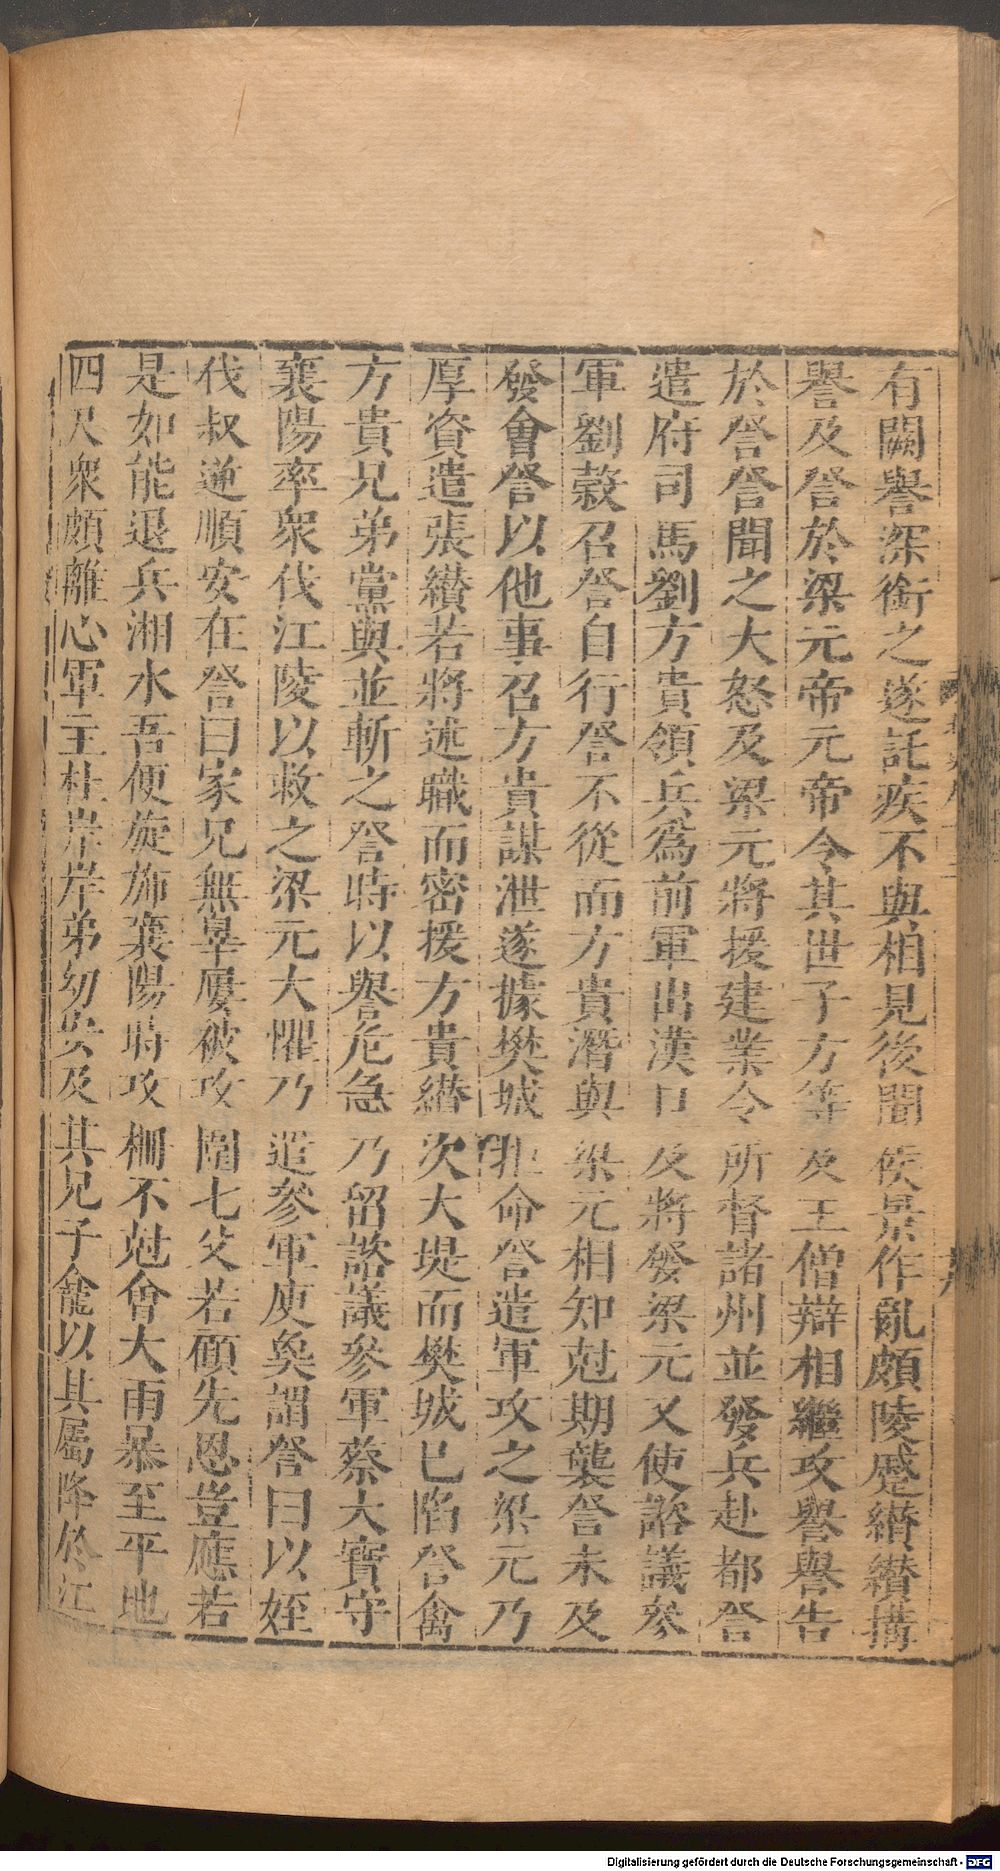 有闕譽深銜之遂託疾不與相見後聞侯景作亂頗陵蹙纘纘搆
譽及詧於梁元帝元帝令其世子方等及王僧辯相繼攻譽譽告
於詧詧聞之大怒及梁元將援建業令所督諸州並發兵赴都詧
遣府司馬劉方貴領兵爲前軍出漢口及將發梁元又使諮議參
軍劉瑴召詧自行詧不從而方貴潛與梁元相知尅期襲詧未及
發會詧以他事召方貴謀泄遂據樊城拒命詧遣軍攻之梁元乃
厚資遣張纘若將述職而密援方貴纘次大堤而樊城已陷詧禽
方貴兄弟黨與並斬之詧時以譽危急乃留諮議參軍蔡大寶守
襄陽率衆伐江陵以救之梁元大懼乃遣參軍庾奐謂詧曰以姪
伐叔逆順安在詧曰家兄無辠屢被攻圍七父若顧先恩豈應若
是如能退兵湘水吾便旋旆襄陽時攻柵不尅會大雨暴至平地
四尺衆頗離心軍主杜岸岸弟幼安及其兄子龕以其屬降於江
Digitalisierung gefördert durch die Deutsche Forschungsgemeinschaft - DFG